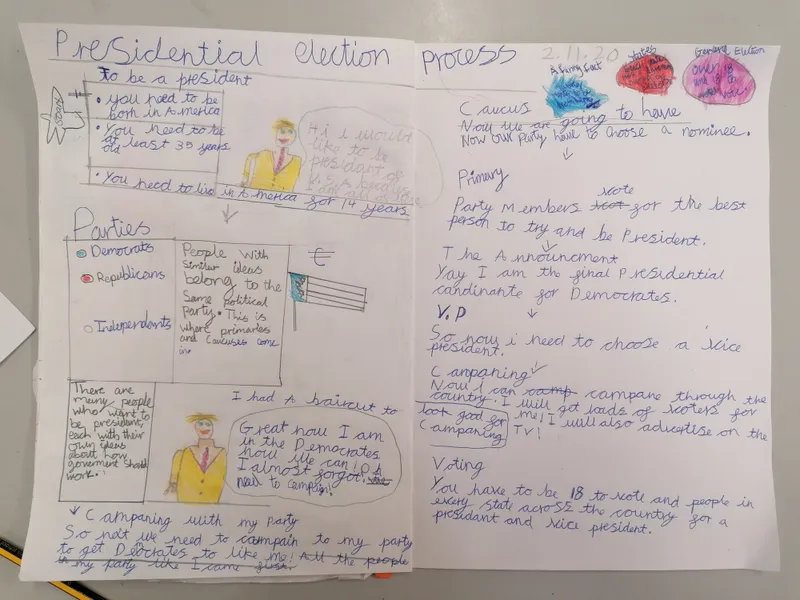 Presidential election process
2.11.20
To be a president
• You need to be
born in America
• You need to be
at least 35 years
old
• You need to live in America for 14 years
Hi I would
like to be
president of
U.S.A because
I am
Parties
Democrats
Republicans
Independents
People With
similar ideas
belong to the
Same political
party. This is
where primaries
and Caucuses come
in.
There are
many people
who want to
be president,
each with their
own ideas
about how
goverment should
work.
I had A haircut to
look good for
Campaning
Great now I am
in the Democrates
now we can! O
I almost forgot.
need to campaign!
Campaning with my Party
So now we need to campain to my party
to get Deocrates to like me! All the people
in my party like I came first.
A Funny Fact
States
General Election
over 18
Caucus
Now we are going to have
Now our party have to choose a nominee.
Primary
Party Members vote for the best
person to try and be President.
The Announcment
Yay I am the final Presidential
candinante for Democrates.
V.P
So now i need to choose a vice
president.
Campaning
Now I can camp campane through the
country. I will get loads of voters for
me! I will also advertise on the
TV!
Voting
You have to be 18 to vote and people in
every state across the country for a
presidant and vice president.